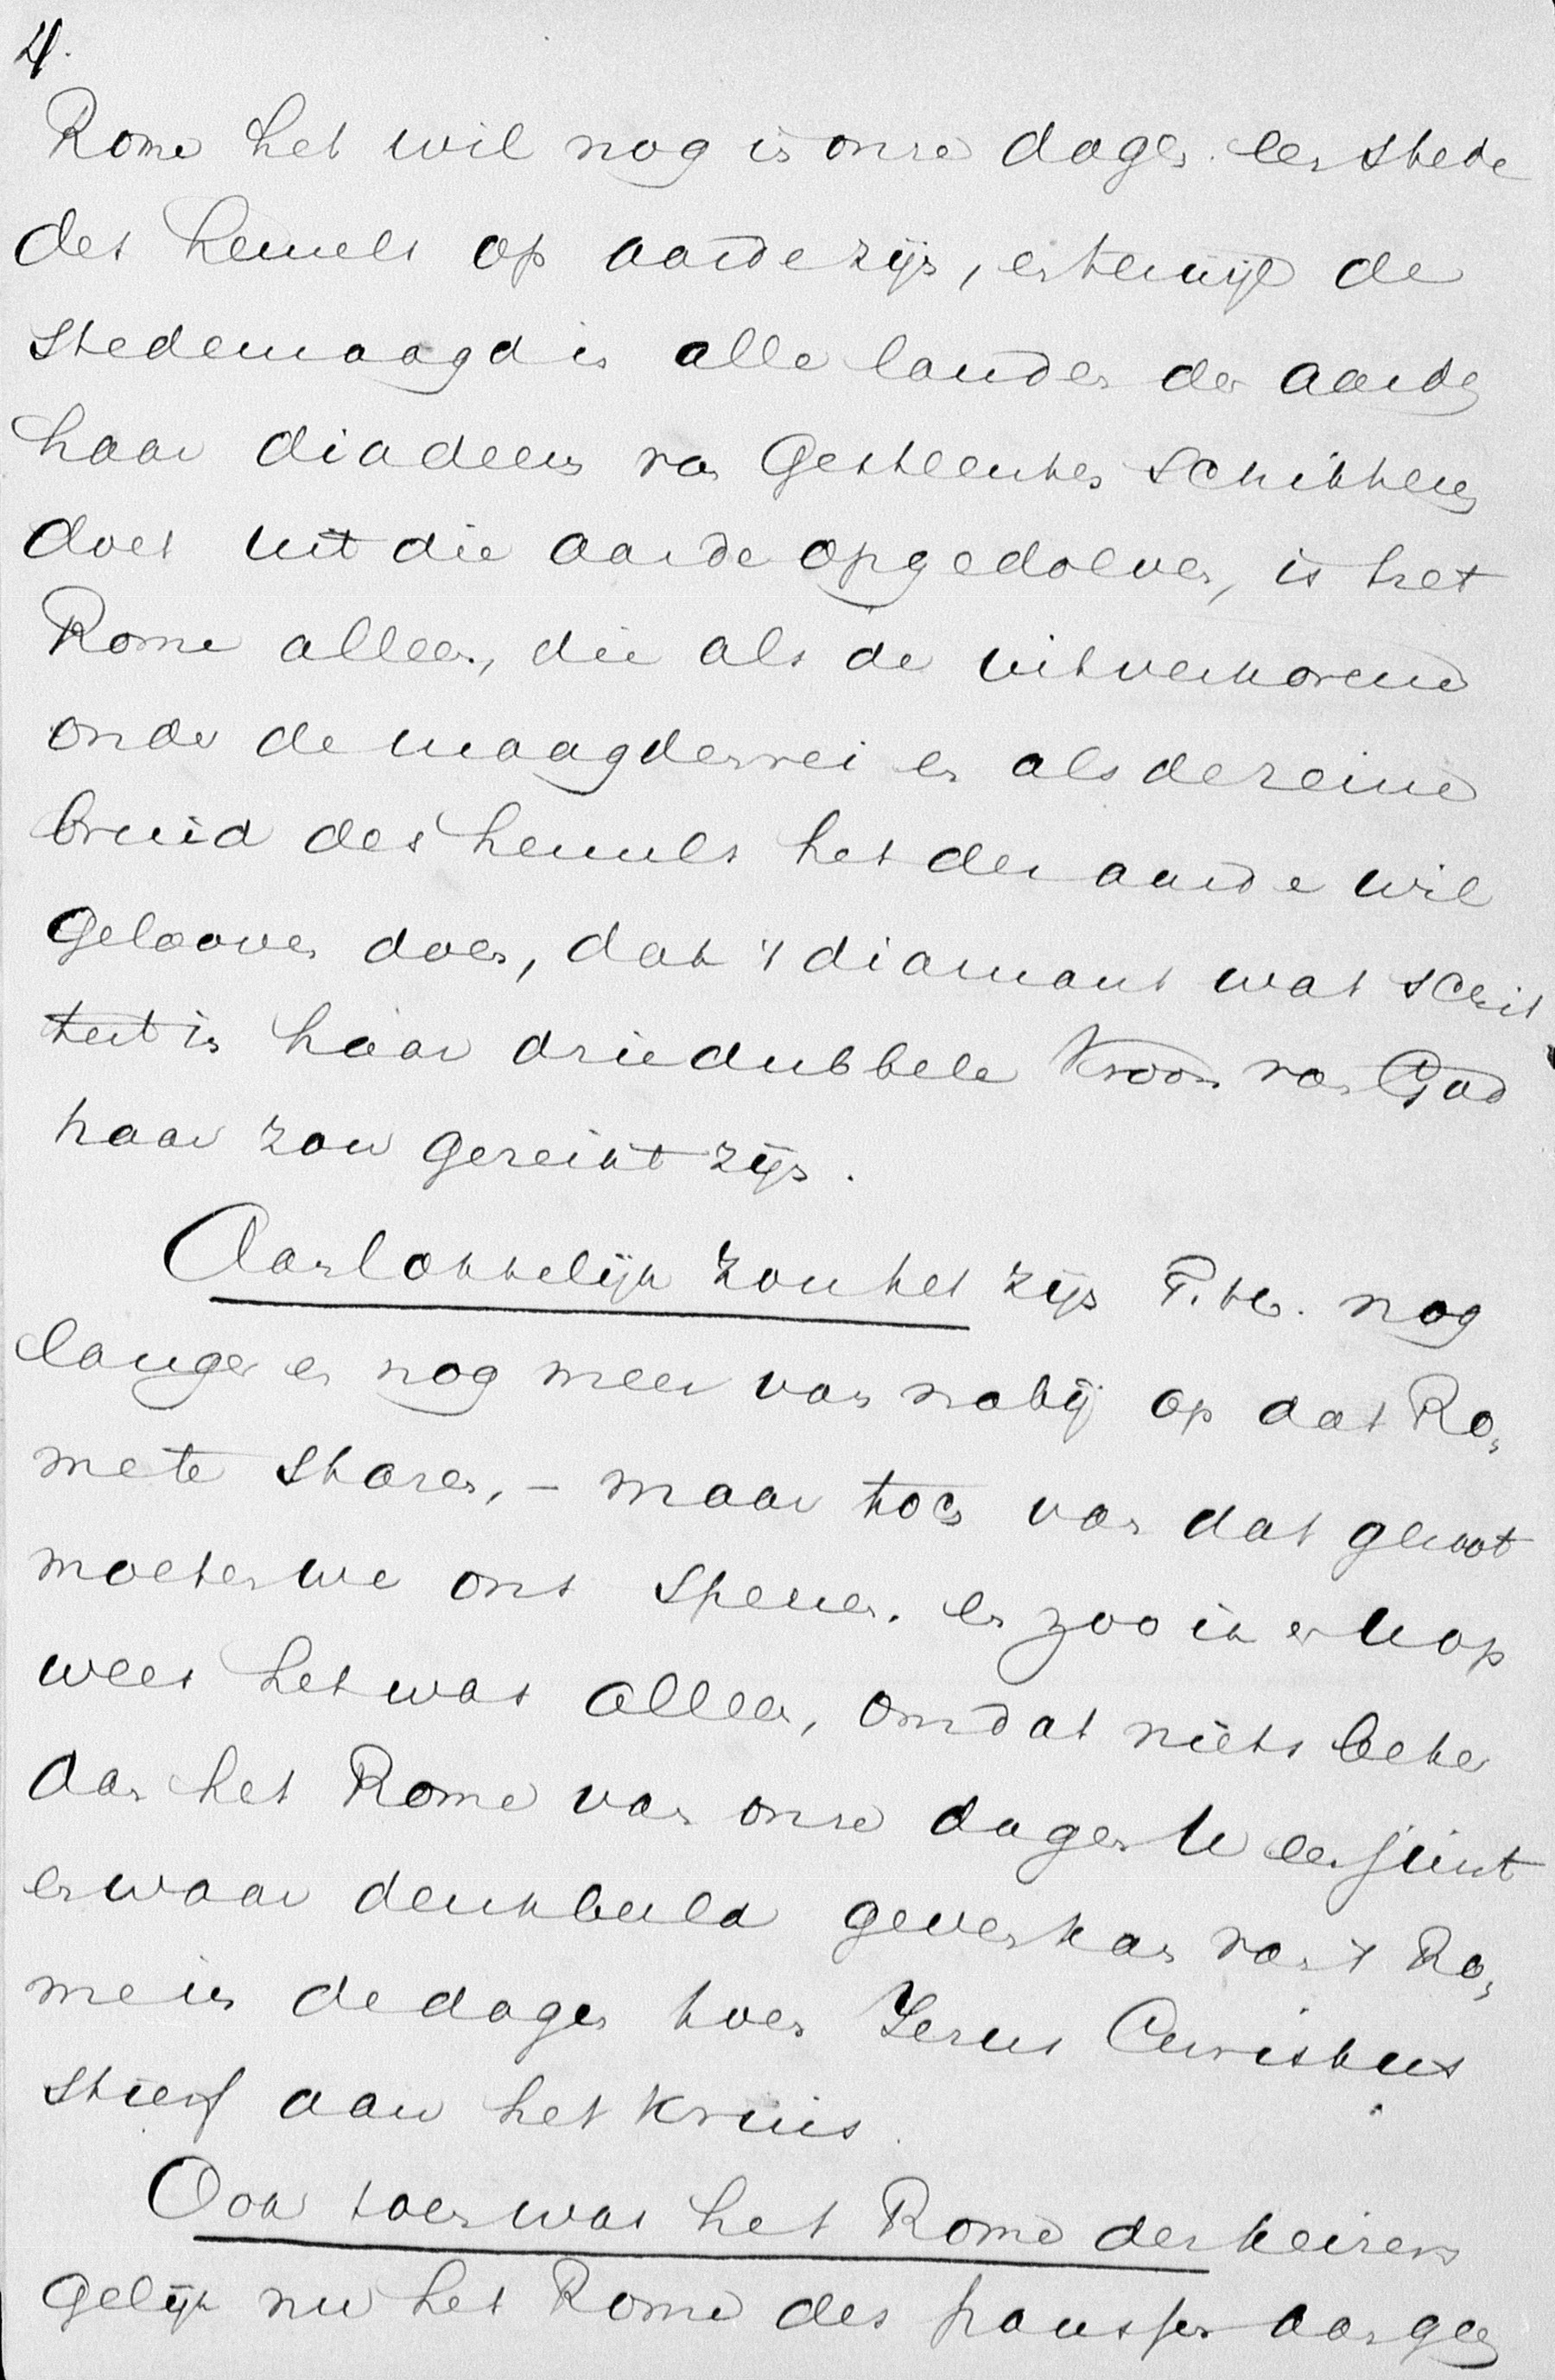 4.
Rome het wil nog in onze dagen een stede
des hemels op aarde zijn, en terwijl de
stedemaagd in alle landen der aarde
haar diadeem van Gesteenten schitteren
doet uit die aarde opgedolven, is het
Rome alleen, die als de uitverkorene
onder de maagdenrei en als de reine
bruid des hemels het der aarde wil
gelooven doen, dat 't diamant wat schit
tert in haar driedubbele Kroon van God
haar zou gereikt zijn.
Aanlokkelijk zou het zijn nog
langer en nog meer van nabij op dat Ro-
me te staren, - maar toch van dat genot
moeten we ons spenen. en zoo ik er U op
wees het was alleen, omdat niets beter
dan het Rome van onze dagen U een juist
en waar denkbeeld geven kan van 't Ro-
me in de dagen toen Jezus Christus
stierf aan het Kruis.
Ook toen was het Rome der keizers
gelijk nu het Rome des pausen